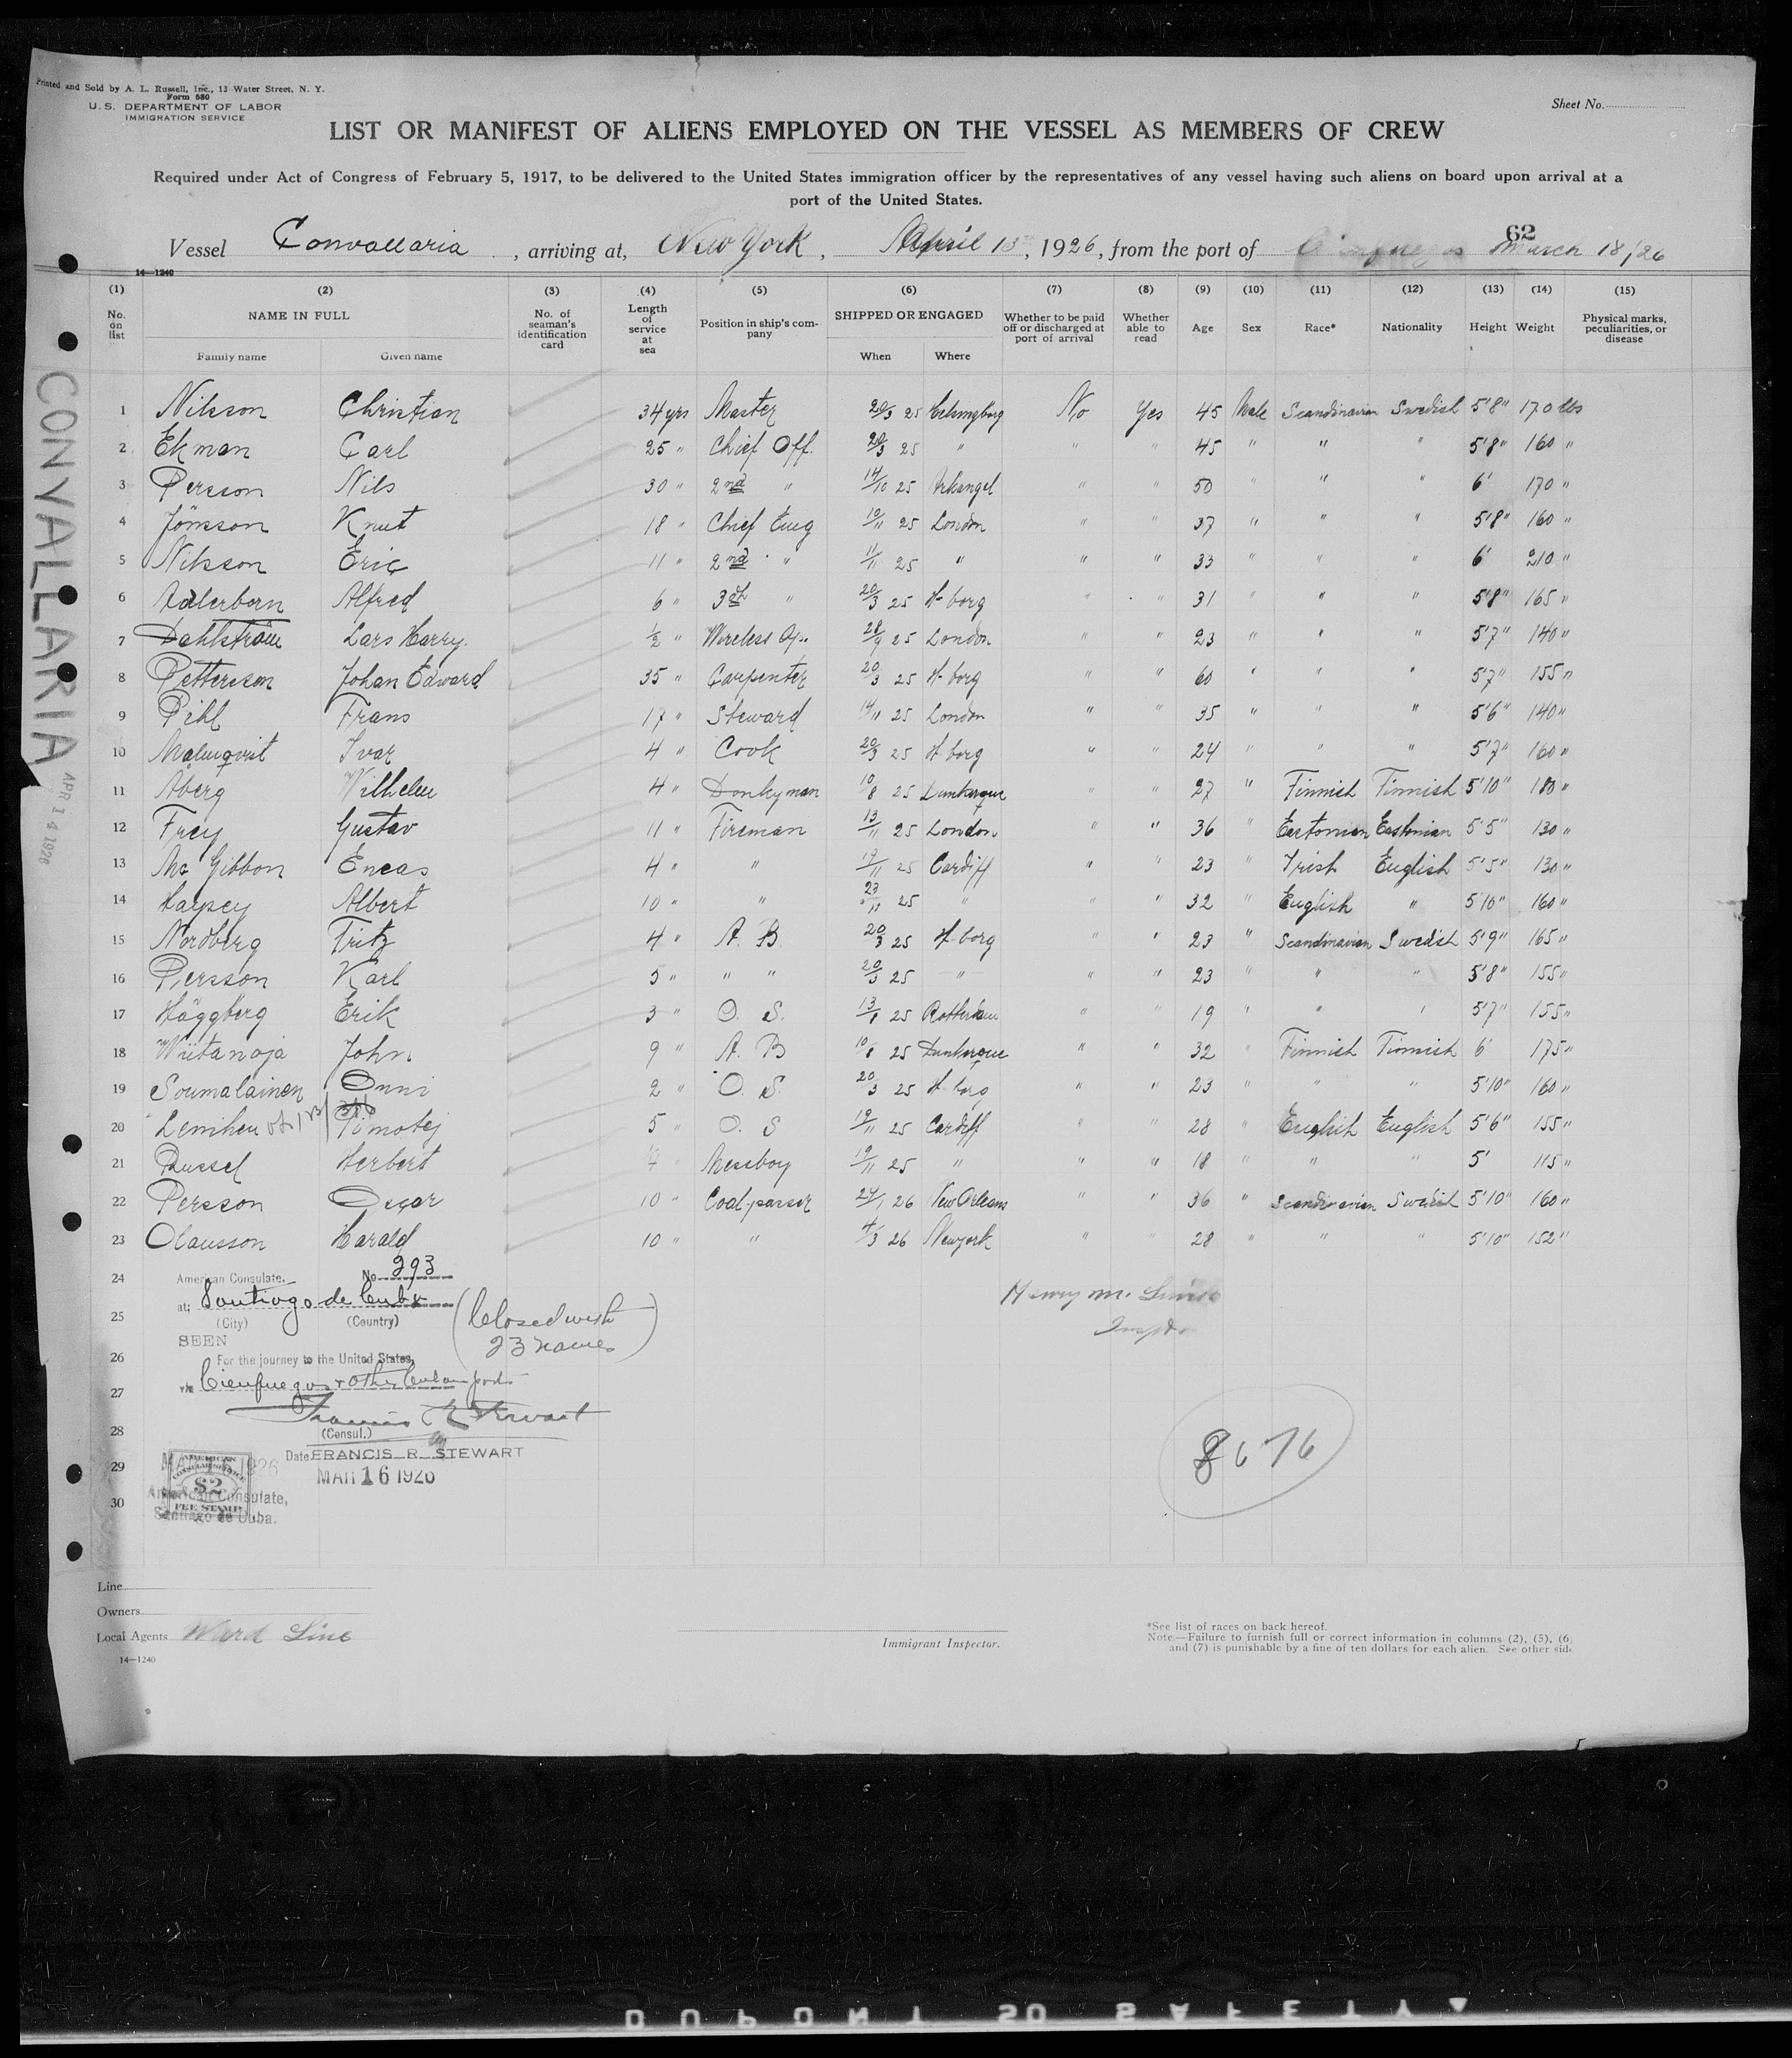 Printed and Sold by A. L. Russell, Inc., 13 Water Street, N. Y.
Form 680
U. S. DEPARTMENT OF LABOR
IMMIGRATION SERVICE
Sheet No.
LIST OR MANIFEST OF ALIENS EMPLOYED ON THE VESSEL AS MEMBERS OF CREW
Required under Act of Congress of February 5, 1917, to be delivered to the United States immigration officer by the representatives of any vessel having such aliens on board upon arrival at a
port of the United States.
62
Vessel Convallaria, arriving at, New York, April 13, 1926, from the port of Cienfuegos March 18/26
14—1240
(1) (2) (3) (4) (5) (6) (7) (8) (9) (10) (11) (12) (13) (14) (15)
No. on list NAME IN FULL Family name Given name No. of seaman's identification card Length of service at sea Position in ship's company SHIPPED OR ENGAGED When Where Whether to be paid off or discharged at port of arrival Whether able to read Age Sex Race* Nationality Height Weight Physical marks, peculiarities, or disease
1 Nilsson Christian 34 yrs Master 20/3 25 Helsingborg No Yes 45 Male Scandinavian Swedish 5'8" 170 lbs
2 Ekman Carl 25 " Chief Off. 20/3 25 " " " 45 " " " 5'8" 160 "
3 Persson Nils 30 " 2nd " 14/10 25 Arkangel " " 50 " " " 6' 170 "
4 Jönsson Knut 18 " Chief Eng 10/11 25 London " " 37 " " " 5'8" 160 "
5 Nilsson Eric 11 " 2nd " 11/11 25 " " " 33 " " " 6' 210 "
6 Adlerborn Alfred 6 " 3rd " 20/3 25 H-borg " " 31 " " " 5'8" 165 "
7 Dahlström Lars Harry. 1/2 " Wireless Op. 28/9 25 London " " 23 " " " 5'7" 140 "
8 Pettersson Johan Edward 35 " Carpenter 20/3 25 H-borg " " 60 " " " 5'7" 155 "
9 Pihl Frans 17 " Steward 14/11 25 London " " 35 " " " 5'6" 140 "
10 Malmqvist Ivar 4 " Cook 20/3 25 H-borg " " 24 " " " 5'7" 160 "
11 Åberg Wilhelm 4 " Donkyman 10/8 25 Dunkerque " " 27 " Finnish Finnish 5'10" 180 "
12 Frey Gustav 11 " Fireman 13/11 25 London " " 36 " Eastonian Eastonian 5'5" 130 "
13 Mc Gibbon Eneas 4 " " 19/11 25 Cardiff " " 23 " Irish English 5'5" 130 "
14 Halpsey Albert 10 " " 23/11 25 " " " 32 " English " 5'10" 160 "
15 Nordberg Fritz 4 " A. B. 20/3 25 H-borg " " 23 " Scandinavian Swedish 5'9" 165 "
16 Persson Karl 5 " " " 20/3 25 " " " 23 " " " 5'8" 155 "
17 Häggberg Erik 3 " O. S. 13/8 25 Rotterdam " " 19 " " " 5'7" 155 "
18 Wiitanoja John 9 " A. B 10/8 25 Dunkerque " " 32 " Finnish Finnish 6' 175 "
19 Soumalainen Onni 2 " O. S. 20/3 25 H-borg " " 23 " " " 5'10" 160 "
20 Lenihen Timotej 5 " O. S 19/11 25 Cardiff " " 28 " English English 5'6" 155 "
21 Russel Herbert " Messboy 19/11 25 " " " 18 " " " 5' 115 "
22 Persson Oscar 10 " Coal-passer 24/1 26 New Orleans " " 36 " Scandinavian Swedish 5'10" 160 "
23 Olausson Harald 10 " " 4/3 26 Newyork " " 28 " " " 5'10" 152 "
24 American Consulate. No 293
at; Santiago de Cuba
25 (City) (Country) (Closed with
SEEN 23 names)
26 For the journey to the United States,
via Cienfuegos & other Cuban ports
27 Francis R Stewart
28 (Consul.)
Date FRANCIS R. STEWART
29 MAR 16 1926
AMERICAN CONSULAR SERVICE $2 FEE STAMP
30 American Consulate,
Santiago de Cuba.
Henry M.
8676
CONVALLARIA
APR 14 1926
Line
Owners
Local Agents Ward Line
14—1240
Immigrant Inspector.
*See list of races on back hereof.
Note.—Failure to furnish full or correct information in columns (2), (5), (6)
and (7) is punishable by a fine of ten dollars for each alien. See other side.
DUPONT SO SAFETY